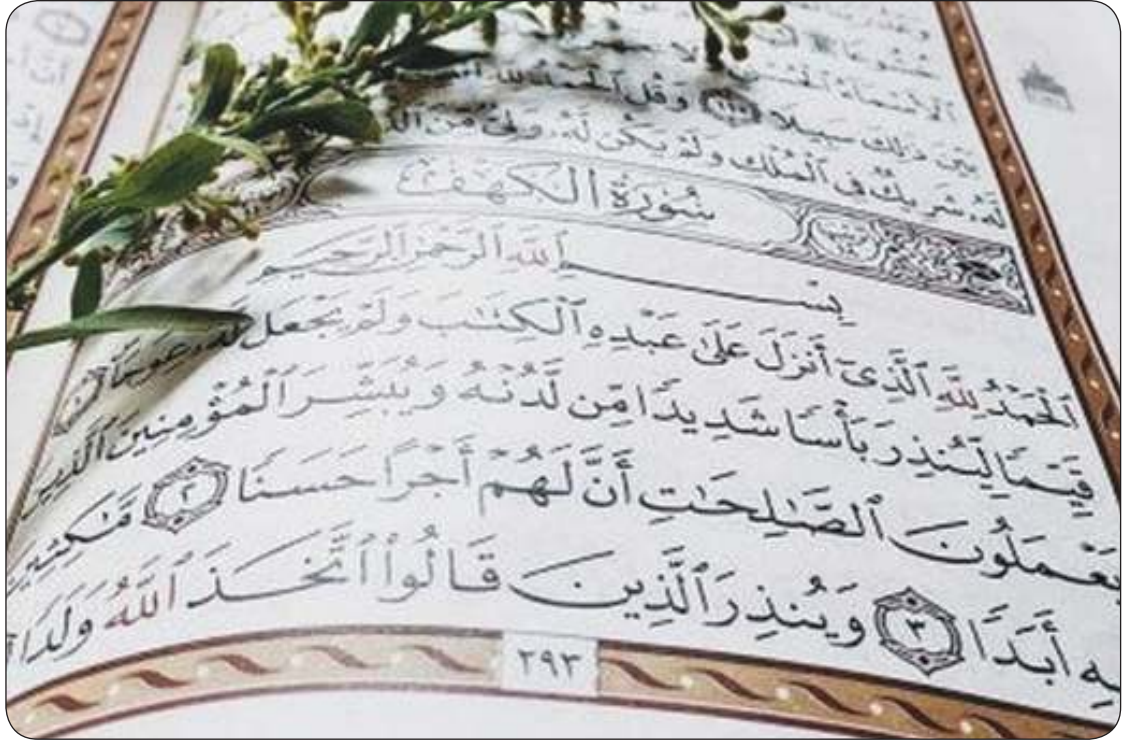 ٱلْأَسْمَآءُ ٱلْحُسْنَىٰ
بَيْنَ ذَٰلِكَ سَبِيلًا ١١٠ وَقُلِ ٱلْحَمْدُ لِلَّهِ
لَّهُۥ شَرِيكٌ فِى ٱلْمُلْكِ وَلَمْ يَكُن لَّهُۥ وَلِىٌّ مِّنَ
سُورَةُ الكَهْفِ
بِسْمِ ٱللَّهِ ٱلرَّحْمَٰنِ ٱلرَّحِيمِ
ٱلْحَمْدُ لِلَّهِ ٱلَّذِىٓ أَنزَلَ عَلَىٰ عَبْدِهِ ٱلْكِتَٰبَ وَلَمْ يَجْعَل لَّهُۥ عِوَجَا ١
قَيِّمًا لِّيُنذِرَ بَأْسًا شَدِيدًا مِّن لَّدُنْهُ وَيُبَشِّرَ ٱلْمُؤْمِنِينَ ٱلَّذِينَ
يَعْمَلُونَ ٱلصَّٰلِحَٰتِ أَنَّ لَهُمْ أَجْرًا حَسَنًا ٢ مَّٰكِثِينَ
فِيهِ أَبَدًا ٣ وَيُنذِرَ ٱلَّذِينَ قَالُوا۟ ٱتَّخَذَ ٱللَّهُ وَلَدًا
٢٩٣